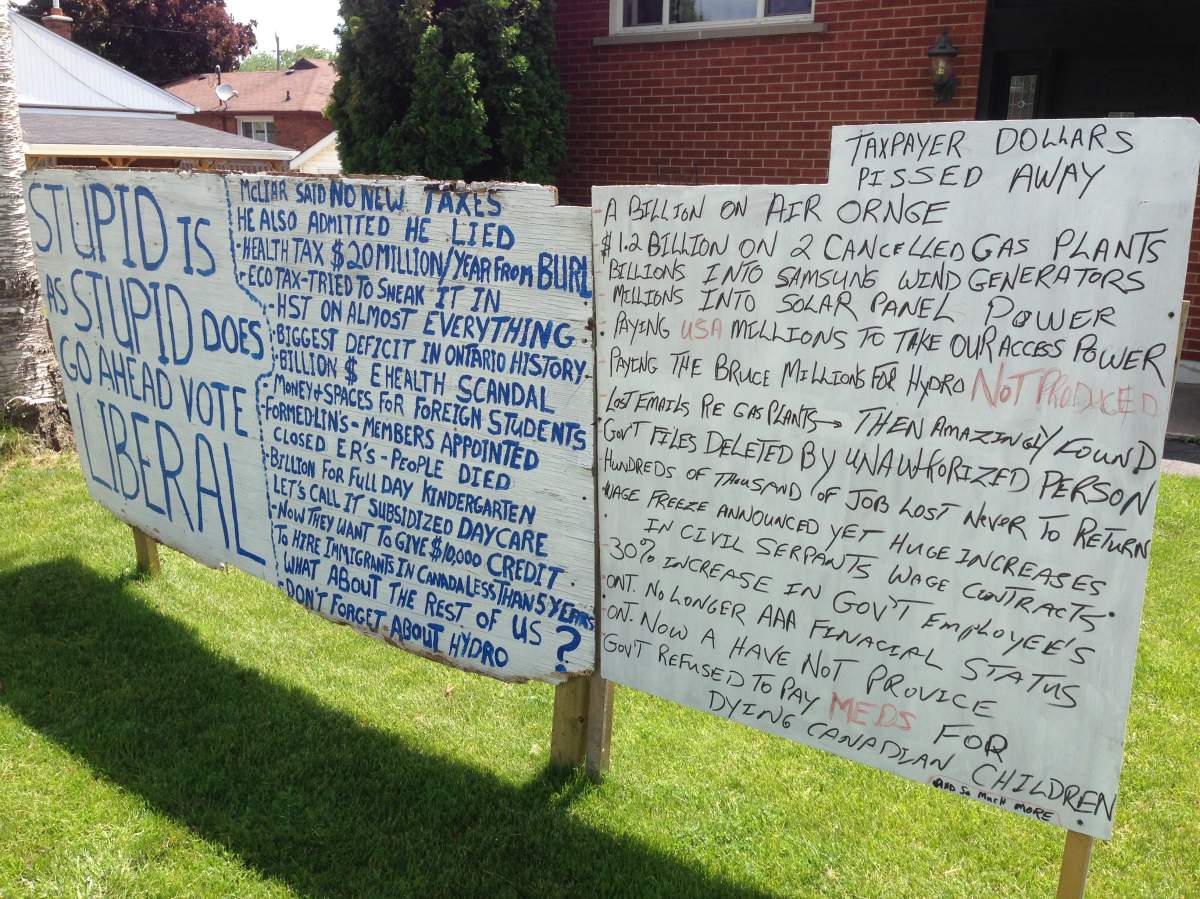 STUPID IS
AS STUPID DOES
GO AHEAD VOTE
LIBERAL
McLIAR SAID NO NEW TAXES
HE ALSO ADMITTED HE LIED
-HEALTH TAX $20 MILLION/YEAR FROM BURL
-ECO TAX-TRIED TO SNEAK IT IN
-HST ON ALMOST EVERYTHING
-BIGGEST DEFICIT IN ONTARIO HISTORY
-BILLION $ EHEALTH SCANDAL
-MONEY & SPACES FOR FOREIGN STUDENTS
-FORMED LIN'S - MEMBERS APPOINTED
CLOSED ER'S - PEOPLE DIED
-BILLION FOR FULL DAY KINDERGARTEN
LET'S CALL IT SUBSIDIZED DAYCARE
-NOW THEY WANT TO GIVE $10,000 CREDIT
TO HIRE IMMIGRANTS IN CANADA LESS THAN 5 YEARS
WHAT ABOUT THE REST OF US?
-DON'T FORGET ABOUT HYDRO
TAXPAYER DOLLARS
PISSED AWAY
A BILLION ON AIR ORNGE
$1.2 BILLION ON 2 CANCELLED GAS PLANTS
BILLIONS INTO SAMSUNG WIND GENERATORS
MILLIONS INTO SOLAR PANEL POWER
-PAYING USA MILLIONS TO TAKE OUR ACCESS POWER
-PAYING THE BRUCE MILLIONS FOR HYDRO NOT PRODUCED
-LOST EMAILS RE GAS PLANTS → THEN AMAZINGLY FOUND
GOV'T FILES DELETED BY UNAUTHORIZED PERSON
HUNDREDS OF THOUSAND OF JOB LOST NEVER TO RETURN
-WAGE FREEZE ANNOUNCED YET HUGE INCREASES
IN CIVIL SERPANTS WAGE CONTRACTS.
-30% INCREASE IN GOV'T EMPLOYEE'S
-ONT. NO LONGER AAA FINACIAL STATUS
-ONT. NOW A HAVE NOT PROVICE
GOV'T REFUSED TO PAY MEDS FOR
DYING CANADIAN CHILDREN
AND SO MUCH MORE